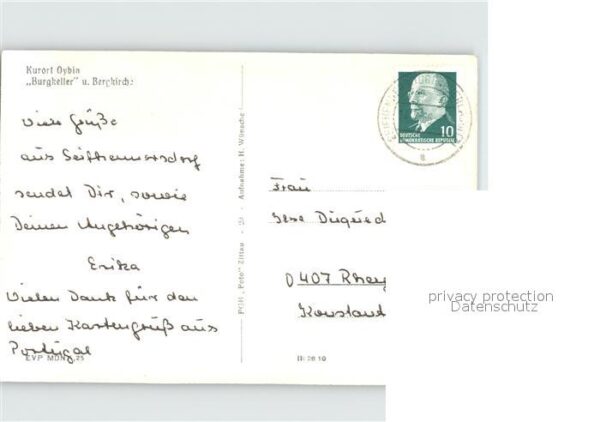 Kurort Oybin
„Burgkeller" u. Bergkirche
Viele Grüße
aus Seifhennersdorf
sendet Dir, sowie
Deinen Angehörigen
Erika
Vielen Dank für den
lieben Kartengruß aus
Portugal
EVP MDN 0,25
PGH „Foto" Zittau - Aufnahme: H. Wünsche
DEUTSCHE
DEMOKRATISCHE REPUBLIK
10
Frau
D 407 Rhey
Konstant
privacy protection
Datenschutz